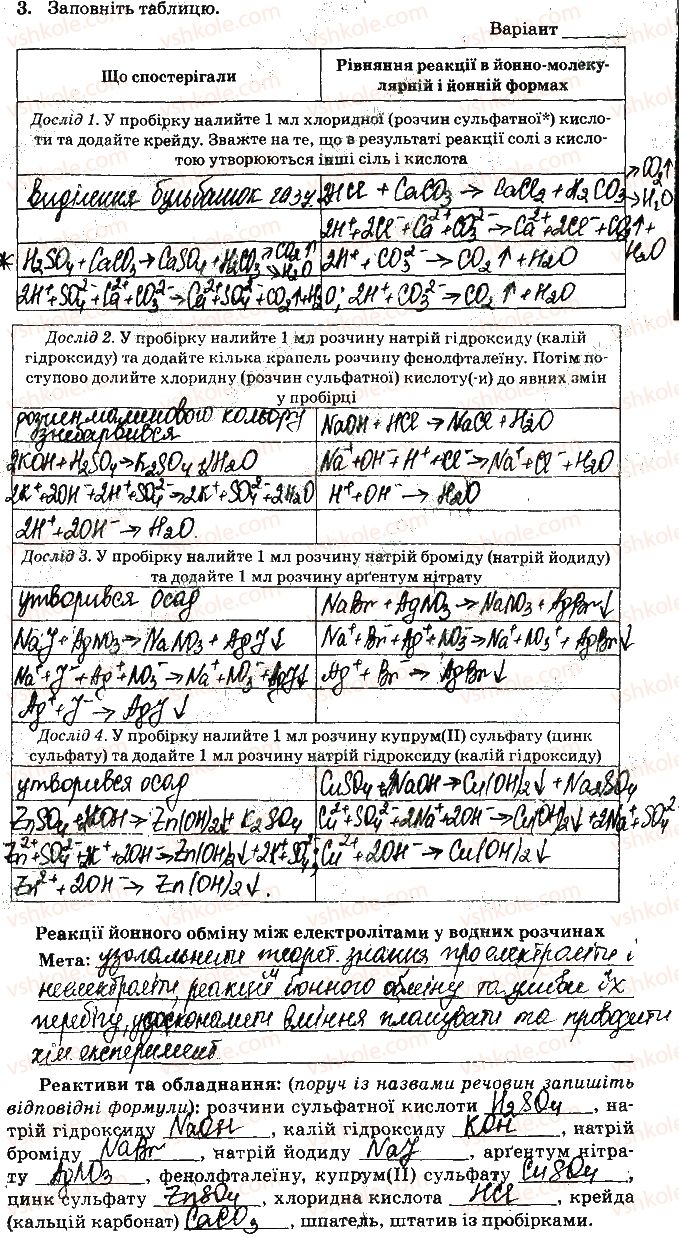 3. Заповніть таблицю.
Варіант
Що спостерігали
Рівняння реакції в йонно-молеку-
лярній і йонній формах
Дослід 1. У пробірку налийте 1 мл хлоридної (розчин сульфатної*) кисло-
ти та додайте крейду. Зважте на те, що в результаті реакції солі з кисло-
тою утворюються інші сіль і кислота
Виділення бульбашок газу
2HCl + CaCO₃ → CaCl₂ + H₂CO₃ → CO₂↑ → H₂O
2H⁺+2Cl⁻+Ca²⁺+CO₃²⁻→Ca²⁺+2Cl⁻+CO₂↑+H₂O
* H₂SO₄+CaCO₃→CaSO₄+H₂CO₃ → CO₂↑ → H₂O
2H⁺+CO₃²⁻→CO₂↑+H₂O
2H⁺+SO₄²⁻+Ca²⁺+CO₃²⁻→Ca²⁺+SO₄²⁻+CO₂↑+H₂O; 2H⁺+CO₃²⁻→CO₂↑+H₂O
Дослід 2. У пробірку налийте 1 мл розчину натрій гідроксиду (калій
гідроксиду) та додайте кілька крапель розчину фенолфталеїну. Потім по-
ступово долийте хлоридну (розчин сульфатної) кислоту(-и) до явних змін
у пробірці
розчин малинового кольору
знебарвився
NaOH + HCl → NaCl + H₂O
2KOH+H₂SO₄→K₂SO₄+2H₂O
Na⁺+OH⁻+H⁺+Cl⁻→Na⁺+Cl⁻+H₂O
2K⁺+2OH⁻+2H⁺+SO₄²⁻→2K⁺+SO₄²⁻+2H₂O
H⁺+OH⁻→H₂O
2H⁺+2OH⁻→H₂O
Дослід 3. У пробірку налийте 1 мл розчину натрій броміду (натрій йодиду)
та додайте 1 мл розчину арґентум нітрату
утворився осад
NaBr+AgNO₃→NaNO₃+AgBr↓
NaJ+AgNO₃→NaNO₃+AgJ↓
Na⁺+Br⁻+Ag⁺+NO₃⁻→Na⁺+NO₃⁺+AgBr↓
Na⁺+J⁻+Ag⁺+NO₃⁻→Na⁺+NO₃⁻+AgJ↓
Ag⁺+Br⁻→AgBr↓
Ag⁺+J⁻→AgJ↓
Дослід 4. У пробірку налийте 1 мл розчину купрум(II) сульфату (цинк
сульфату) та додайте 1 мл розчину натрій гідроксиду (калій гідроксиду)
утворився осад
CuSO₄+2NaOH→Cu(OH)₂↓+Na₂SO₄
ZnSO₄+2KOH→Zn(OH)₂↓+K₂SO₄
Cu²⁺+SO₄²⁻+2Na⁺+2OH⁻→Cu(OH)₂↓+2Na⁺+SO₄²⁻
Zn²⁺+SO₄²⁻+2K⁺+2OH⁻→Zn(OH)₂↓+2K⁺+SO₄²⁻;
Cu²⁺+2OH⁻→Cu(OH)₂↓
Zn²⁺+2OH⁻→Zn(OH)₂↓.
Реакції йонного обміну між електролітами у водних розчинах
Мета: узагальнити теорет. знання про електроліти і
неелектроліти, реакції йонного обміну та умови їх
перебігу, удосконалити вміння планувати та проводити
хім експеримент
Реактиви та обладнання: (поруч із назвами речовин запишіть
відповідні формули): розчини сульфатної кислоти H₂SO₄, на-
трій гідроксиду NaOH, калій гідроксиду KOH, натрій
броміду NaBr, натрій йодиду NaJ, арґентум нітра-
ту AgNO₃, фенолфталеїну, купрум(II) сульфату CuSO₄,
цинк сульфату ZnSO₄, хлоридна кислота HCl, крейда
(кальцій карбонат) CaCO₃, шпатель, штатив із пробірками.